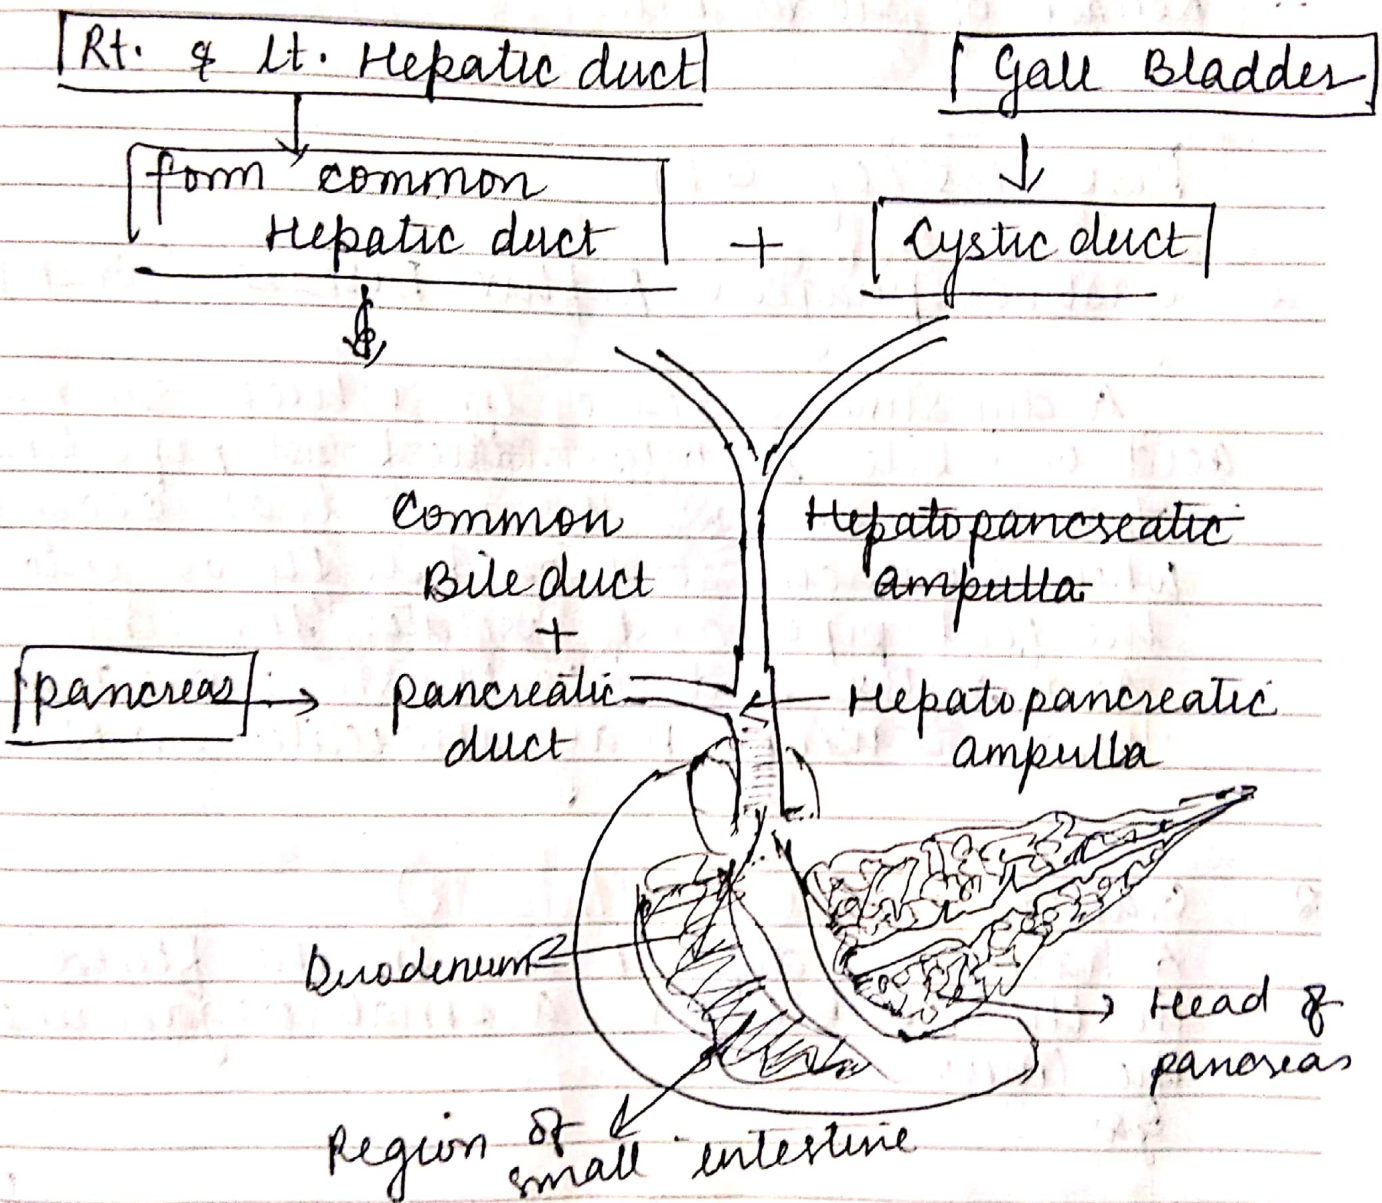 Rt. & lt. Hepatic duct
Gall Bladder
form common
Hepatic duct
+
Cystic duct
Common
Bile duct
+
Hepatopancreatic
ampulla
pancreas
pancreatic
duct
Hepatopancreatic
ampulla
Duodenum
Head of
pancreas
Region of
small intestine